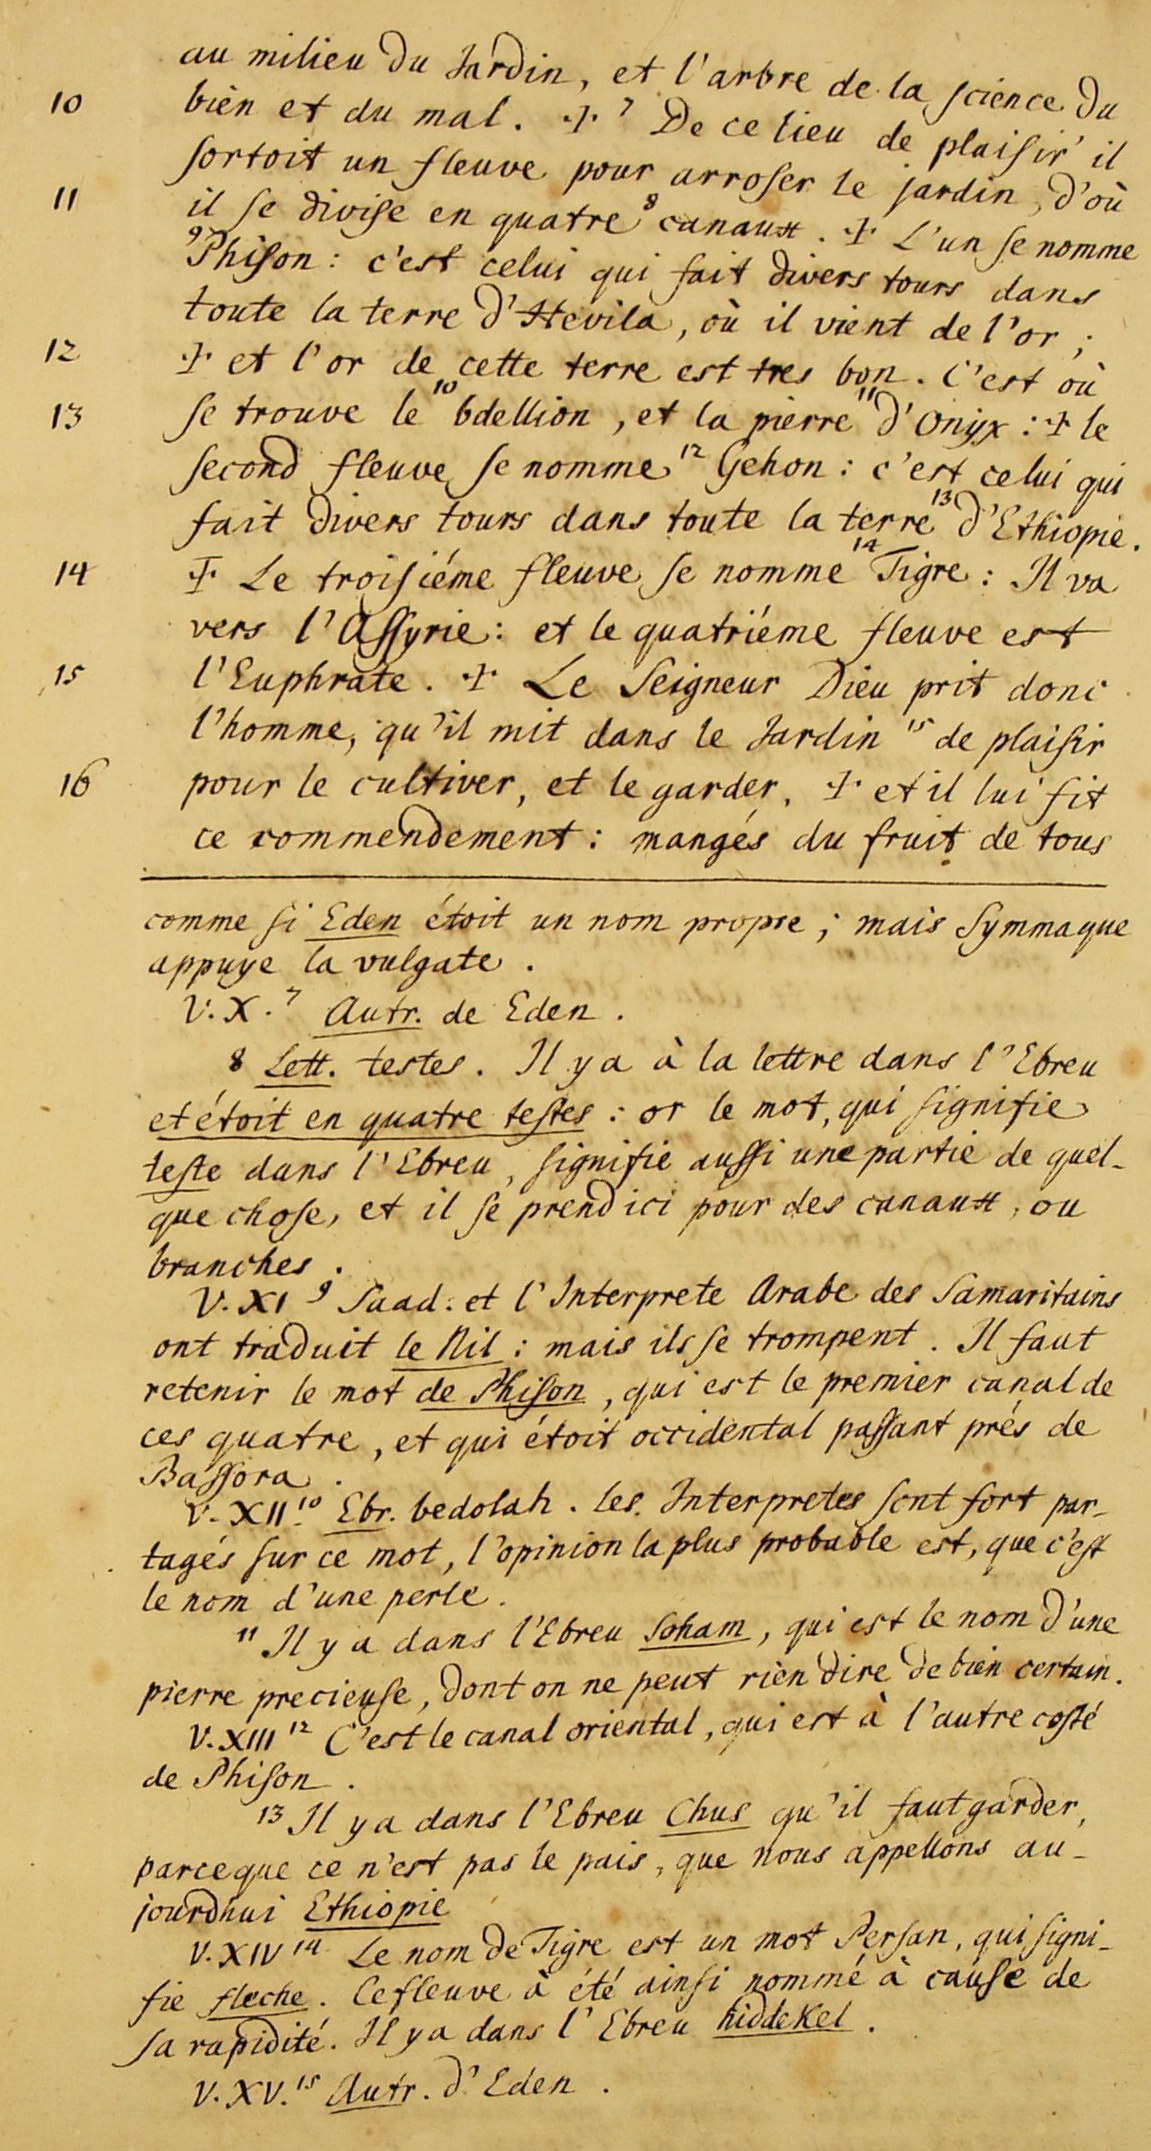 au milieu du Jardin, et l'arbre de la science du
10 bien et du mal. ✢ 7 De ce lieu de plaisir il
sortoit un fleuve pour arroser le jardin, d'où
11 il se divise en quatre 8 canaux. ✢ L'un se nomme
9 Phison : c'est celui qui fait divers tours dans
toute la terre d'Hevila, où il vient de l'or ;
12 ✢ et l'or de cette terre est tres bon. C'est où
13 se trouve le 10 bdellion, et la pierre 11 d'Onyx : ✢ le
second fleuve se nomme 12 Gehon : c'est celui qui
fait divers tours dans toute la terre 13 d'Ethiopie.
14 ✢ Le troisiéme fleuve se nomme 14 Tigre : Il va
vers l'Assyrie : et le quatriéme fleuve est
15 l'Euphrate. ✢ Le Seigneur Dieu prit donc
l'homme, qu'il mit dans le Jardin 15 de plaisir
16 pour le cultiver, et le garder, ✢ et il lui fit
ce commendement : mangés du fruit de tous
comme si Eden étoit un nom propre ; mais Symmaque
appuye la vulgate.
V. X. 7 Autr. de Eden.
8 Lett. testes. Il y a à la lettre dans l'Ebreu
et étoit en quatre testes : or le mot, qui signifie
teste dans l'Ebreu, signifie aussi une partie de quel-
que chose, et il se prend ici pour des canaux, ou
branches.
V. XI 9 Saad. et l'Interprete Arabe des Samaritains
ont traduit le Nil : mais ils se trompent. Il faut
retenir le mot de Phison, qui est le premier canal de
ces quatre, et qui étoit occidental passant prés de
Bassora.
V. XII. 10 Ebr. bedolah. les Interpretes sont fort par-
tagés sur ce mot, l'opinion la plus probable est, que c'est
le nom d'une perle.
11 Il y a dans l'Ebreu Soham, qui est le nom d'une
pierre precieuse, dont on ne peut rien dire de bien certain.
V. XIII 12 C'est le canal oriental, qui est à l'autre costé
de Phison.
13 Il y a dans l'Ebreu Chus qu'il faut garder,
parceque ce n'est pas le pais, que nous appellons au-
jourdhui Ethiopie
V. XIV 14 Le nom de Tigre est un mot Persan, qui signi-
fie fleche. Ce fleuve à été ainsi nommé à cause de
sa rapidité. Il y a dans l'Ebreu hiddekel.
V. XV. 15 Autr. d'Eden.